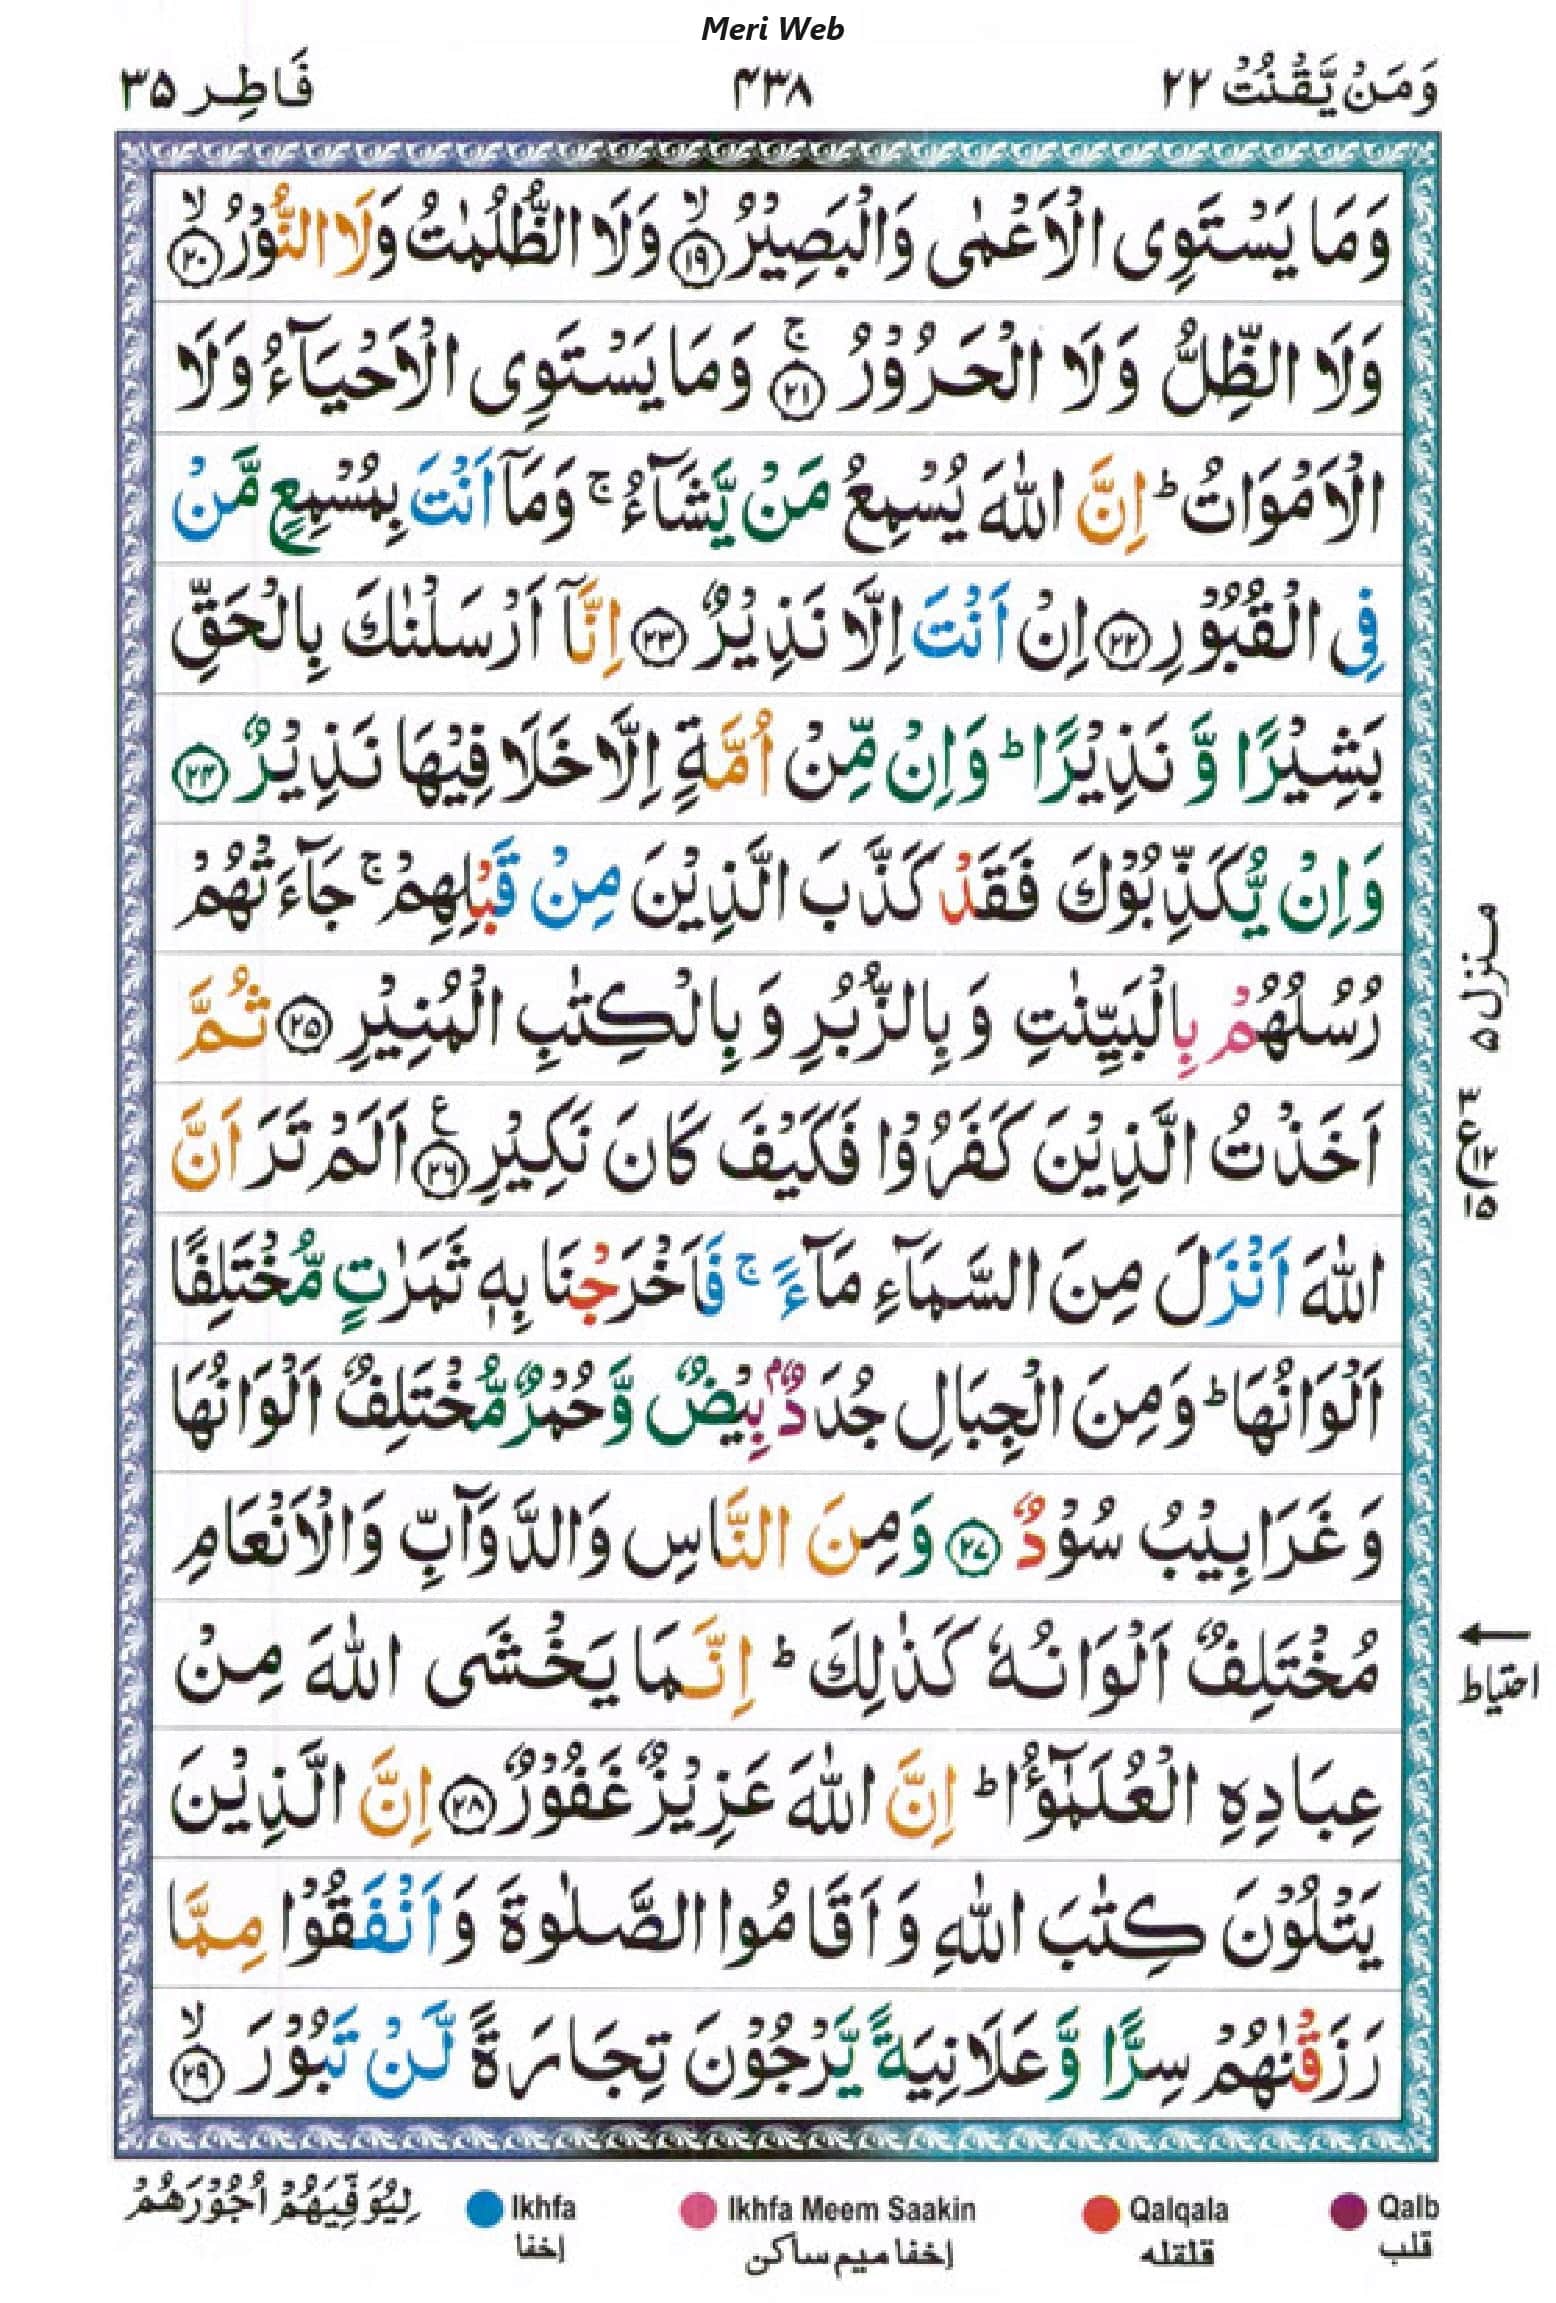 Meri Web
وَمَنْ يَّقْنُتْ ٢٢ ٤٣٨ فَاطِر ٣٥
وَمَا يَسْتَوِى الْاَعْمٰى وَالْبَصِيْرُ ۙ‏﴿۱۹﴾ وَلَا الظُّلُمٰتُ وَلَا النُّوْرُ ۙ‏﴿۲۰﴾
وَلَا الظِّلُّ وَلَا الْحَرُوْرُ ۚ‏﴿۲۱﴾ وَمَا يَسْتَوِى الْاَحْيَآءُ وَلَا
الْاَمْوَاتُ ؕ اِنَّ اللّٰهَ يُسْمِعُ مَنْ يَّشَآءُ ۚ وَمَاۤ اَنْتَ بِمُسْمِعٍ مَّنْ
فِى الْقُبُوْرِ ﴿۲۲﴾ اِنْ اَنْتَ اِلَّا نَذِيْرٌ ﴿۲۳﴾ اِنَّاۤ اَرْسَلْنٰكَ بِالْحَقِّ
بَشِيْرًا وَّ نَذِيْرًا ؕ وَاِنْ مِّنْ اُمَّةٍ اِلَّا خَلَا فِيْهَا نَذِيْرٌ ﴿۲۴﴾
وَاِنْ يُّكَذِّبُوْكَ فَقَدْ كَذَّبَ الَّذِيْنَ مِنْ قَبْلِهِمْ ۚ جَآءَتْهُمْ
رُسُلُهُمْ بِالْبَيِّنٰتِ وَ بِالزُّبُرِ وَ بِالْكِتٰبِ الْمُنِيْرِ ﴿۲۵﴾ ثُمَّ
اَخَذْتُ الَّذِيْنَ كَفَرُوْا فَكَيْفَ كَانَ نَكِيْرِ ﴿۲۶﴾ ع اَلَمْ تَرَ اَنَّ
اللّٰهَ اَنْزَلَ مِنَ السَّمَآءِ مَآءً ۚ فَاَخْرَجْنَا بِهٖ ثَمَرٰتٍ مُّخْتَلِفًا
اَلْوَانُهَا ؕ وَمِنَ الْجِبَالِ جُدَدٌۢ بِيْضٌ وَّحُمْرٌ مُّخْتَلِفٌ اَلْوَانُهَا
وَغَرَابِيْبُ سُوْدٌ ﴿۲۷﴾ وَمِنَ النَّاسِ وَالدَّوَآبِّ وَالْاَنْعَامِ
مُخْتَلِفٌ اَلْوَانُهٗ كَذٰلِكَ ؕ اِنَّمَا يَخْشَى اللّٰهَ مِنْ
عِبَادِهِ الْعُلَمٰٓؤُا ؕ اِنَّ اللّٰهَ عَزِيْزٌ غَفُوْرٌ ﴿۲۸﴾ اِنَّ الَّذِيْنَ
يَتْلُوْنَ كِتٰبَ اللّٰهِ وَ اَقَامُوا الصَّلٰوةَ وَ اَنْفَقُوْا مِمَّا
رَزَقْنٰهُمْ سِرًّا وَّ عَلَانِيَةً يَّرْجُوْنَ تِجَارَةً لَّنْ تَبُوْرَ ۙ‏﴿۲۹﴾
منزل ۵
٣ ع ١٢ ١٥
احتياط
لِيُوَفِّيَهُمْ اُجُوْرَهُمْ
Ikhfa
إخفا
Ikhfa Meem Saakin
إخفا ميم ساكن
Qalqala
قلقله
Qalb
قلب